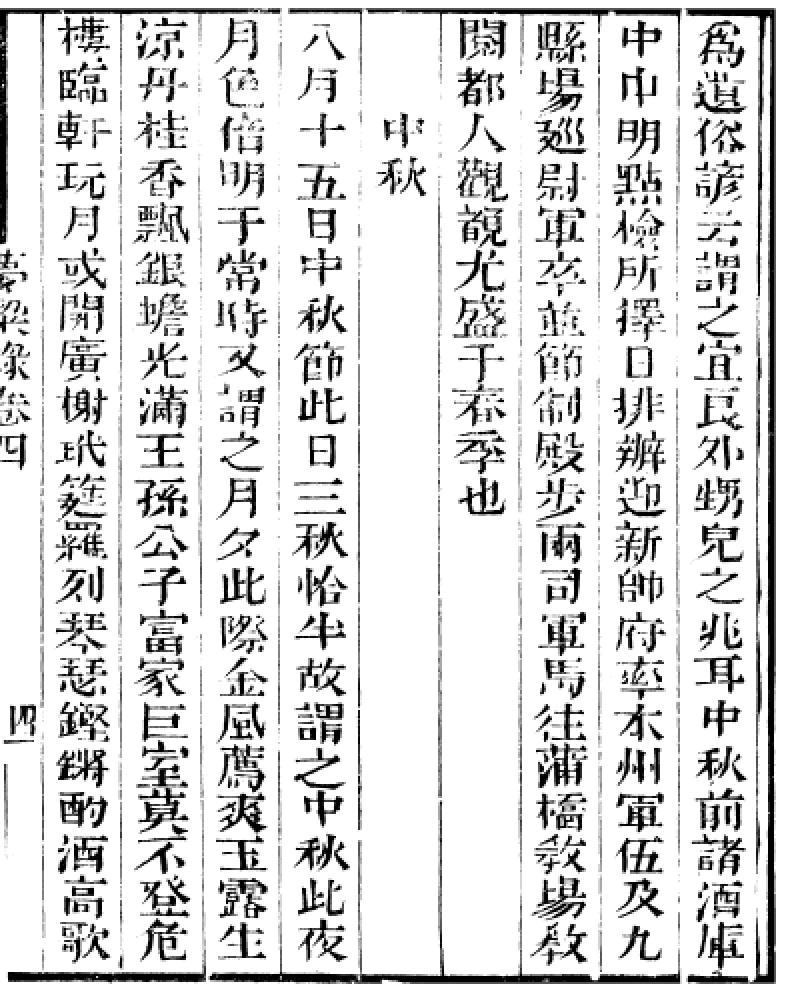 爲遺俗諺云謂之宜良外甥兒之兆耳中秋前諸酒庫
中巾明點檢所擇日排辦迎新帥府率本州軍伍及九
縣場廵尉軍卒並節制殿步兩司軍馬往蒲橋敎場敎
閱都人觀覩尤盛于春季也
中秋
八月十五日中秋節此日三秋恰半故謂之中秋此夜
月色倍明于常時又謂之月夕此際金風薦爽玉露生
涼丹桂香飄銀蟾光滿王孫公子富家巨室莫不登危
樓臨軒玩月或開廣榭玳筵羅列琴瑟鏗鏘酌酒高歌
夢梁錄卷四
四